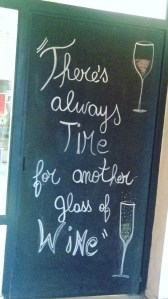 "There's
always
Time
for another
glass of
Wine"